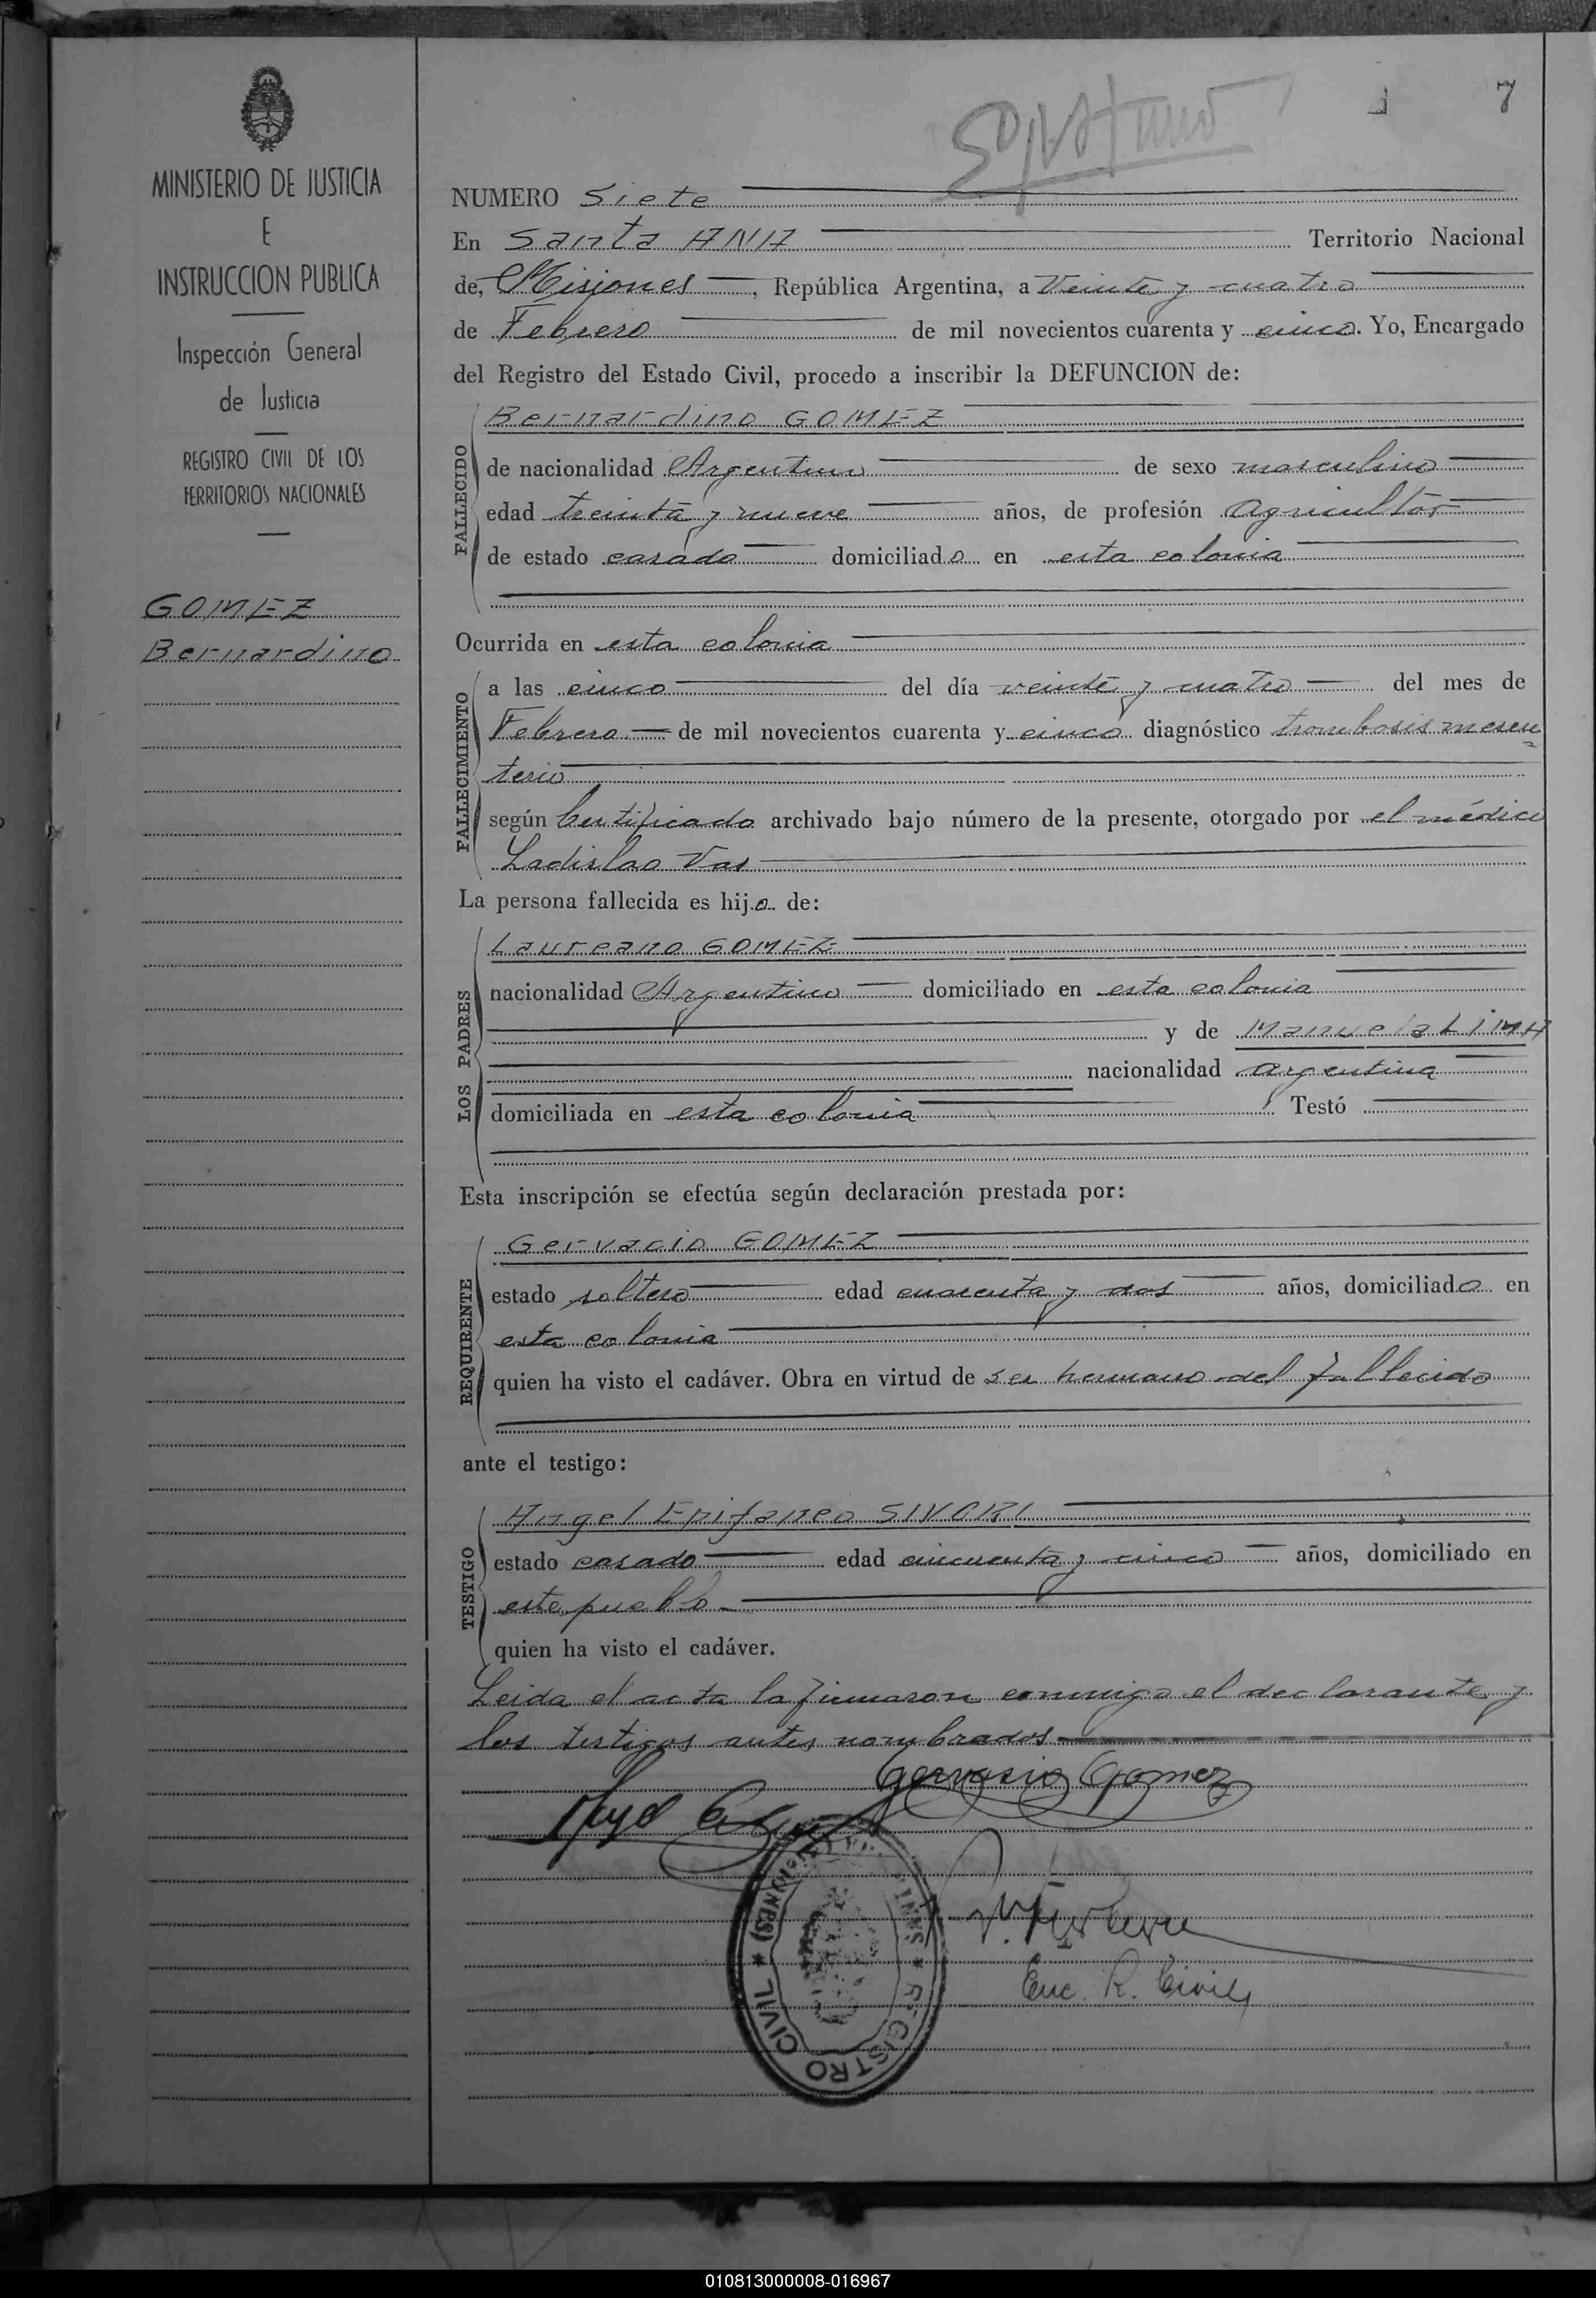 7
MINISTERIO DE JUSTICIA
E
INSTRUCCION PUBLICA
Inspección General
de Justicia
REGISTRO CIVIL DE LOS
TERRITORIOS NACIONALES
GOMEZ
Bernardino
NUMERO Siete
En Santa ANA Territorio Nacional
de, Misiones, República Argentina, a Veinte y cuatro
de Febrero de mil novecientos cuarenta y cinco. Yo, Encargado
del Registro del Estado Civil, procedo a inscribir la DEFUNCION de:
FALLECIDO
Bernardino GOMEZ
de nacionalidad Argentino de sexo masculino
edad treinta y nueve años, de profesión Agricultor
de estado casado domiciliado en esta colonia
Ocurrida en esta colonia
FALLECIMIENTO
a las cinco del día veinte y cuatro del mes de
Febrero de mil novecientos cuarenta y cinco diagnóstico trombosis mesen
terio
según Certificado archivado bajo número de la presente, otorgado por el médico
Ladislao Vas
La persona fallecida es hijo de:
LOS PADRES
Laureano GOMEZ
nacionalidad Argentino domiciliado en esta colonia
y de Manuela LIMA
nacionalidad argentina
domiciliada en esta colonia Testó
Esta inscripción se efectúa según declaración prestada por:
REQUIRENTE
Gervacio GOMEZ
estado soltero edad cuarenta y dos años, domiciliado en
esta colonia
quien ha visto el cadáver. Obra en virtud de ser hermano del fallecido
ante el testigo:
TESTIGO
Angel Epifaneo SIVORI
estado casado edad cincuenta y cinco años, domiciliado en
este pueblo
quien ha visto el cadáver.
Leida el acta la firmaron conmigo el declarante y
los testigos antes nombrados
Gervasio Gomez
Angel
Enc. R. Civil
REGISTRO CIVIL * (MISIONES)
010813000008-016967